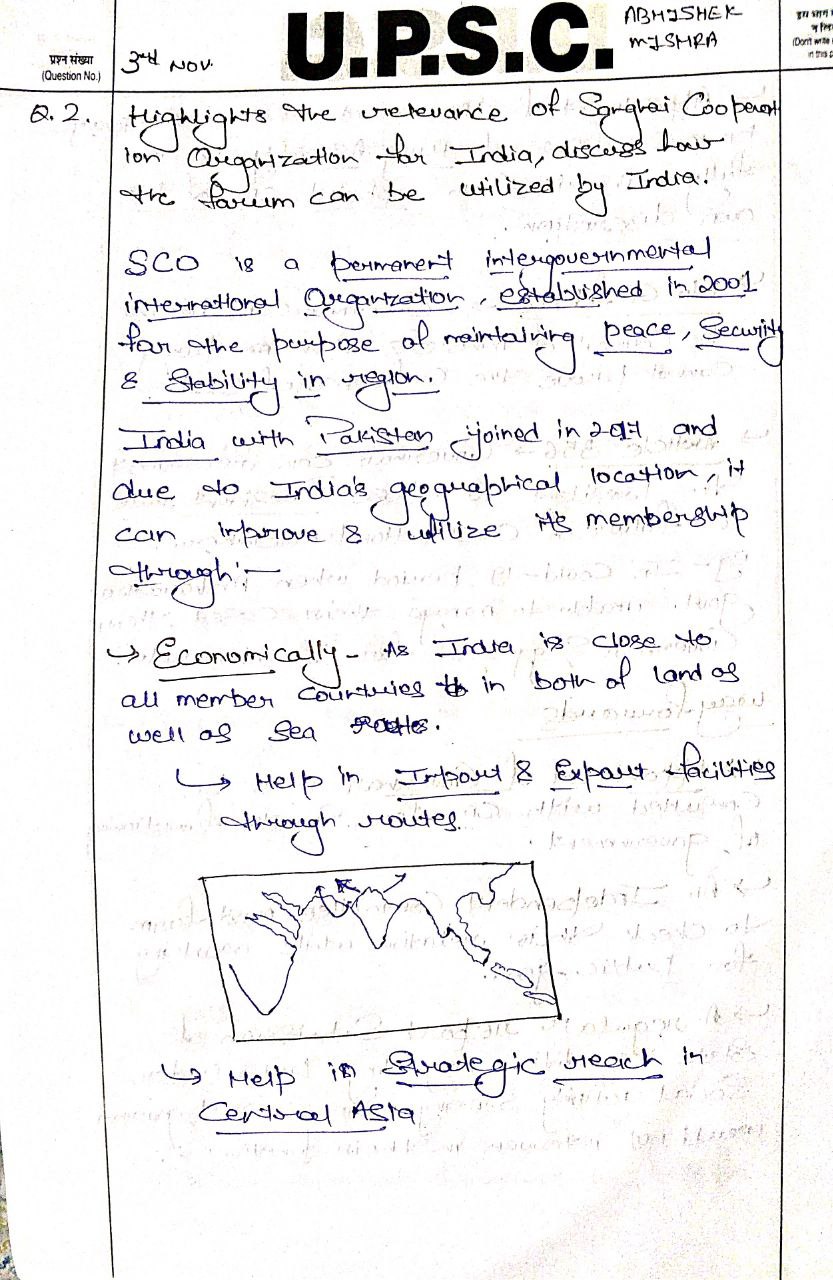 U.P.S.C.
ABHISHEK
MISHRA
प्रश्न संख्या
(Question No.)
3rd Nov.
(Don't write
in this
Q.2. Highlights the relevance of Sanghai Cooperat
ion Organization for India, discuss how
the forum can be utilized by India.
SCO is a permanent intergovernmental
international Organization, established in 2001
for the purpose of maintaining peace, Security
& Stability in region.
India with Pakistan joined in 2017 and
due to India's geographical location, it
can improve & utilize its membership
through:-
→ Economically - As India is close to
all member countries in both of land as
well as Sea routes.
↳ Help in Import & Export facilities
through routes.
↳ Help in Strategic reach in
Central Asia